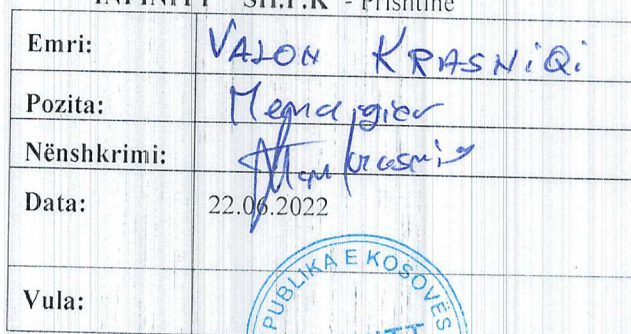 INFINITT SH.P.K - Prishtinë
Emri: VALON KRASNiQi
Pozita: Menagjer
Nënshkrimi:
Data: 22.06.2022
Vula: PUBLIKA E KOSOVËS